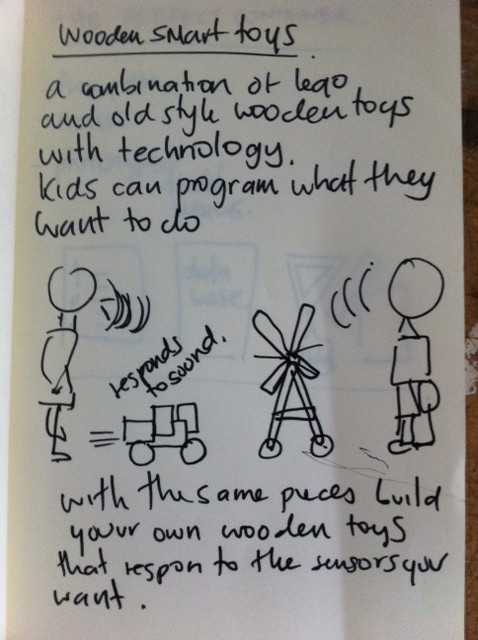 wooden smart toys.
a combination of lego
and old style wooden toys
with technology.
kids can program what they
want to do
responds
to sound.
with the same pieces build
your own wooden toys
that respon to the sensors your
want.
data
base